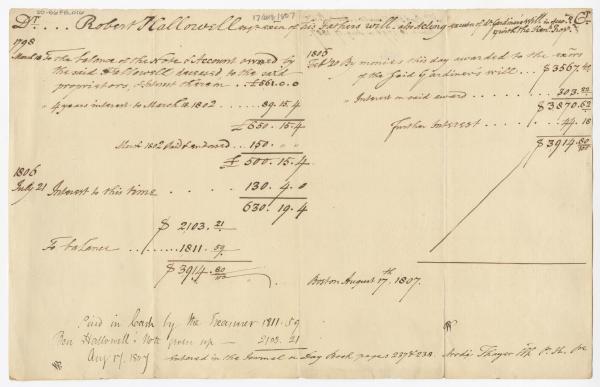 17 Aug. 1807
Dr. . . . Robert Hallowell as exen of his Fathers will, also acting exeren of Dr. Gardiners Will in Acct. Ct.
with the Ken. Prop.
1798
March 12 To the balance of the Note & Account owed by
the said Hallowell deceased to the said
proprietors, & Interest thereon . . . £561. 0. 0
" 4 years interest to March 12. 1802 . . . . 89. 15. 4
£650. 15. 4
March 1802 Paid & endorsed . . . 150. " "
£500. 15. 4
1806
July 21 Interest to this time . . . . 130. 4. 0
630. 19. 4
$ 2103. 21
To balance . . . . . . . 1811. 59
$ 3914. 80/100
1806
Feb 20 By monies this day awarded to the exors
of the said Gardiner's will . . . $ 3567. 40
" Interest on said award . . . . 303. 22
$ 3870. 62
Further Interest . . . . . . 44. 18
$ 3914. 80/100
Boston August 17th. 1807.
Paid in Cash by the Treasurer 1811. 59
Rob Hallowell's Note given up — 2103. 21
Aug 17. 1807
entered in the Journal or Day Book pages 237 & 238.
Arodi Thayer